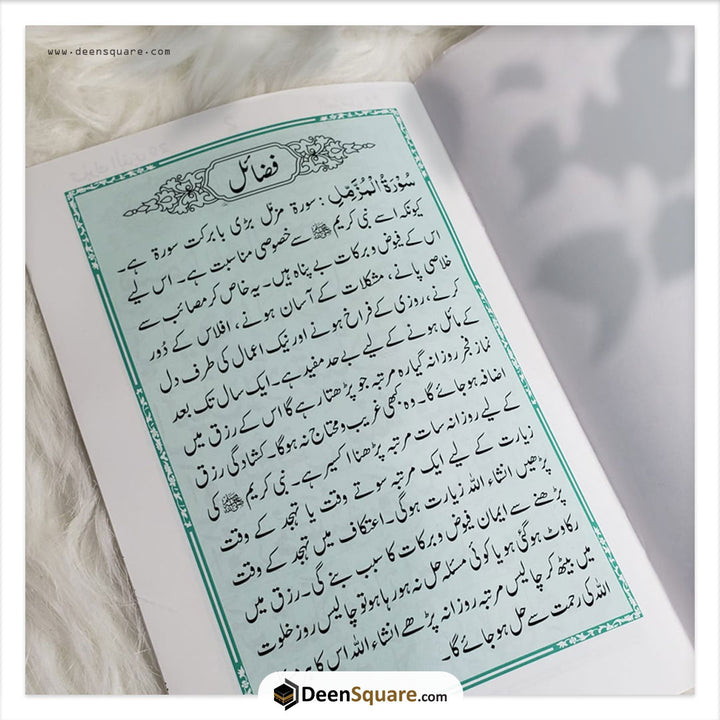 www.deensquare.com
فضائل
سُوْرَةُ الْمُزَّمِّلِ : سورۃ مزمل بڑی بابرکت سورۃ ہے۔
کیونکہ اسے نبی کریم ﷺ سے خصوصی مناسبت ہے۔ اس لیے
اس کے فیوض و برکات بے پناہ ہیں۔ یہ خاص کر مصائب سے
خلاصی پانے، مشکلات کے آسان ہونے، افلاس کے دُور
کرنے، روزی کے فراخ ہونے اور نیک اعمال کی طرف دل
کے مائل ہونے کے لیے بے حد مفید ہے۔ ایک سال تک بعد
نماز فجر روزانہ گیارہ مرتبہ جو پڑھتا رہے گا اس کے رزق میں
اضافہ ہو جائے گا۔ وہ کبھی غریب و محتاج نہ ہوگا۔ کشادگی رزق
کے لیے روزانہ سات مرتبہ پڑھنا اکسیر ہے۔ نبی کریم ﷺ کی
زیارت کے لیے ایک مرتبہ سوتے وقت یا تہجد کے وقت
پڑھیں انشاء اللہ زیارت ہوگی۔ اعتکاف میں تہجد کے وقت
پڑھنے سے ایمان فیوض و برکات کا سبب بنے گی۔ رزق میں
رکاوٹ ہو گئی ہو یا کوئی مسئلہ حل نہ ہو رہا ہو تو چالیس روز خلوت
میں بیٹھ کر چالیس مرتبہ روزانہ پڑھے انشاء اللہ اس کا
اللہ کی رحمت سے حل ہو جائے گا۔
DeenSquare.com